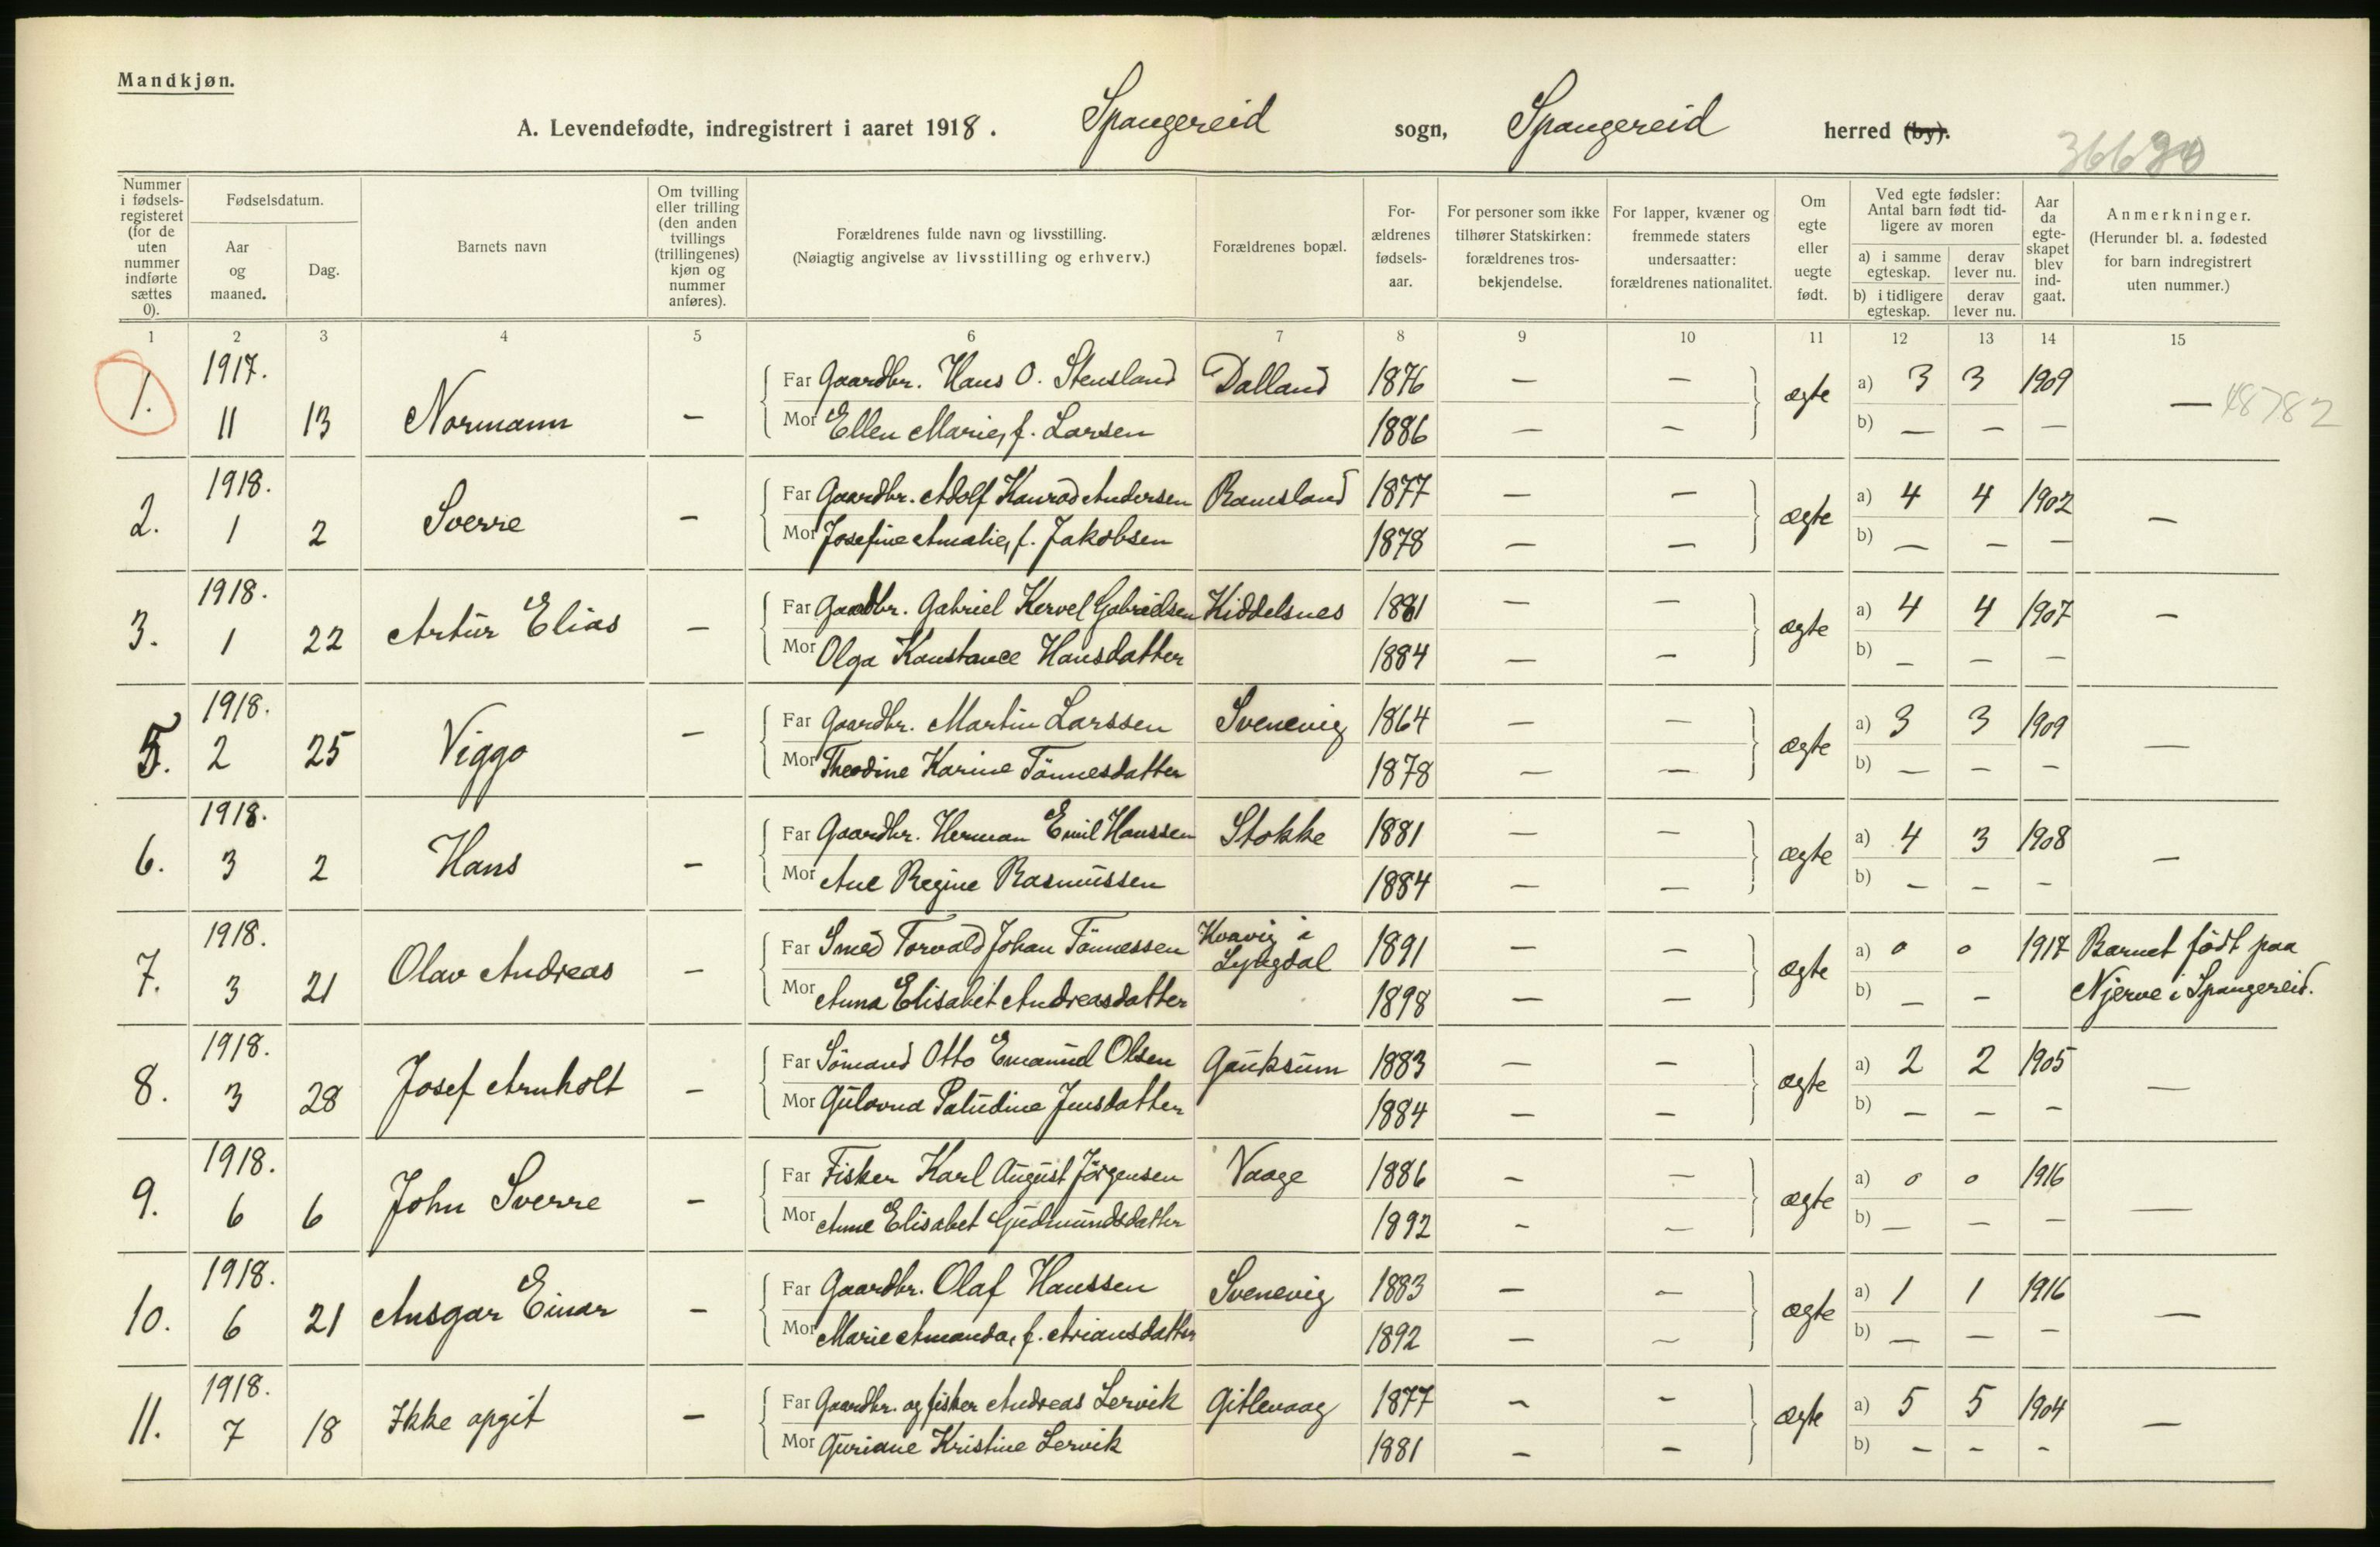 Mandkjøn.
A. Levendefødte, indregistrert i aaret 1918. Spangereid sogn, Spangereid herred (by).
Nummer i fødsels-registeret (for de uten nummer indførte sættes 0).
Fødselsdatum.
Aar og maaned.
Dag.
Barnets navn
Om tvilling eller trilling (den anden tvillings (trillingenes) kjøn og nummer anføres).
Forældrenes fulde navn og livsstilling.
(Nøiagtig angivelse av livsstilling og erhverv.)
Forældrenes bopæl.
For-ældrenes fødsels-aar.
For personer som ikke tilhører Statskirken: forældrenes tros-bekjendelse.
For lapper, kvæner og fremmede staters undersaatter: forældrenes nationalitet.
Om egte eller uegte født.
Ved egte fødsler: Antal barn født tid-ligere av moren
a) i samme egteskap.
derav lever nu.
b) i tidligere egteskap.
derav lever nu.
Aar da egte-skapet blev ind-gaat.
Anmerkninger.
(Herunder bl. a. fødested for barn indregistrert uten nummer.)
1 2 3 4 5 6 7 8 9 10 11 12 13 14 15
1. 1917. 11 13 Normann – Far Gaardbr. Hans O. Stensland Dalland 1876 – – ægte a) 3 3 1909 – 48782
Mor Ellen Marie, f. Larsen 1886 – – b) – – –
2. 1918. 1 2 Sverre – Far Gaardbr. Adolf Konrad Andersen Ramsland 1877 – – ægte a) 4 4 1902 –
Mor Josefine Amalie, f. Jakobsen 1878 – – b) – – –
3. 1918. 1 22 Artur Elias – Far Gaardbr. Gabriel Kervel Gabrielsen Kiddelsnes 1881 – – ægte a) 4 4 1907 –
Mor Olga Konstance Hansdatter 1884 – – b) – – –
5. 1918. 2 25 Viggo – Far Gaardbr. Martin Larssen Svenevig 1864 – – ægte a) 3 3 1909 –
Mor Theodine Karine Tönnesdatter 1878 – – b) – – –
6. 1918. 3 2 Hans – Far Gaardbr. Herman Emil Hanssen Stokke 1881 – – ægte a) 4 3 1908 –
Mor Ane Regine Rasmussen 1884 – – b) – – –
7. 1918. 3 21 Olav Andreas – Far Smed Torvald Johan Tönnessen Kvavig i Lyngdal 1891 – – ægte a) 0 0 1917 Barnet födt paa
Mor Anna Elisabet Andreasdatter 1898 – – b) – – Njerve i Spangereid.
8. 1918. 3 28 Josef Arnholt – Far Sömand Otto Emanuel Olsen Gauksum 1883 – – ægte a) 2 2 1905 –
Mor Gulovna Paludine Jensdatter 1884 – – b) – – –
9. 1918. 6 6 John Sverre – Far Fisker Karl August Jörgensen Vaage 1886 – – ægte a) 0 0 1916 –
Mor Anne Elisabet Gudmundsdatter 1892 – – b) – – –
10. 1918. 6 21 Ansgar Einar – Far Gaardbr. Olaf Hanssen Svenevig 1883 – – ægte a) 1 1 1916 –
Mor Marie Amanda, f. Ariansdatter 1892 – – b) – – –
11. 1918. 7 18 Ikke opgit – Far Gaardbr. og fisker Andreas Lervik Gitlevaag 1877 – – ægte a) 5 5 1904 –
Mor Guriane Kristine Lervik 1881 – – b) – – –